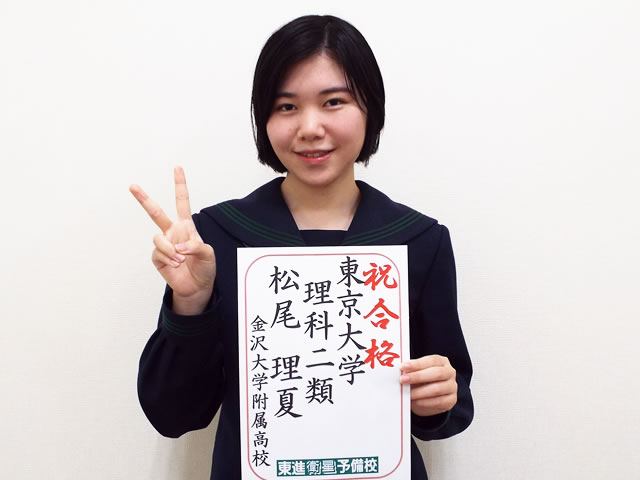 祝合格
東京大学
理科二類
松尾 理夏
金沢大学附属高校
東進衛星予備校